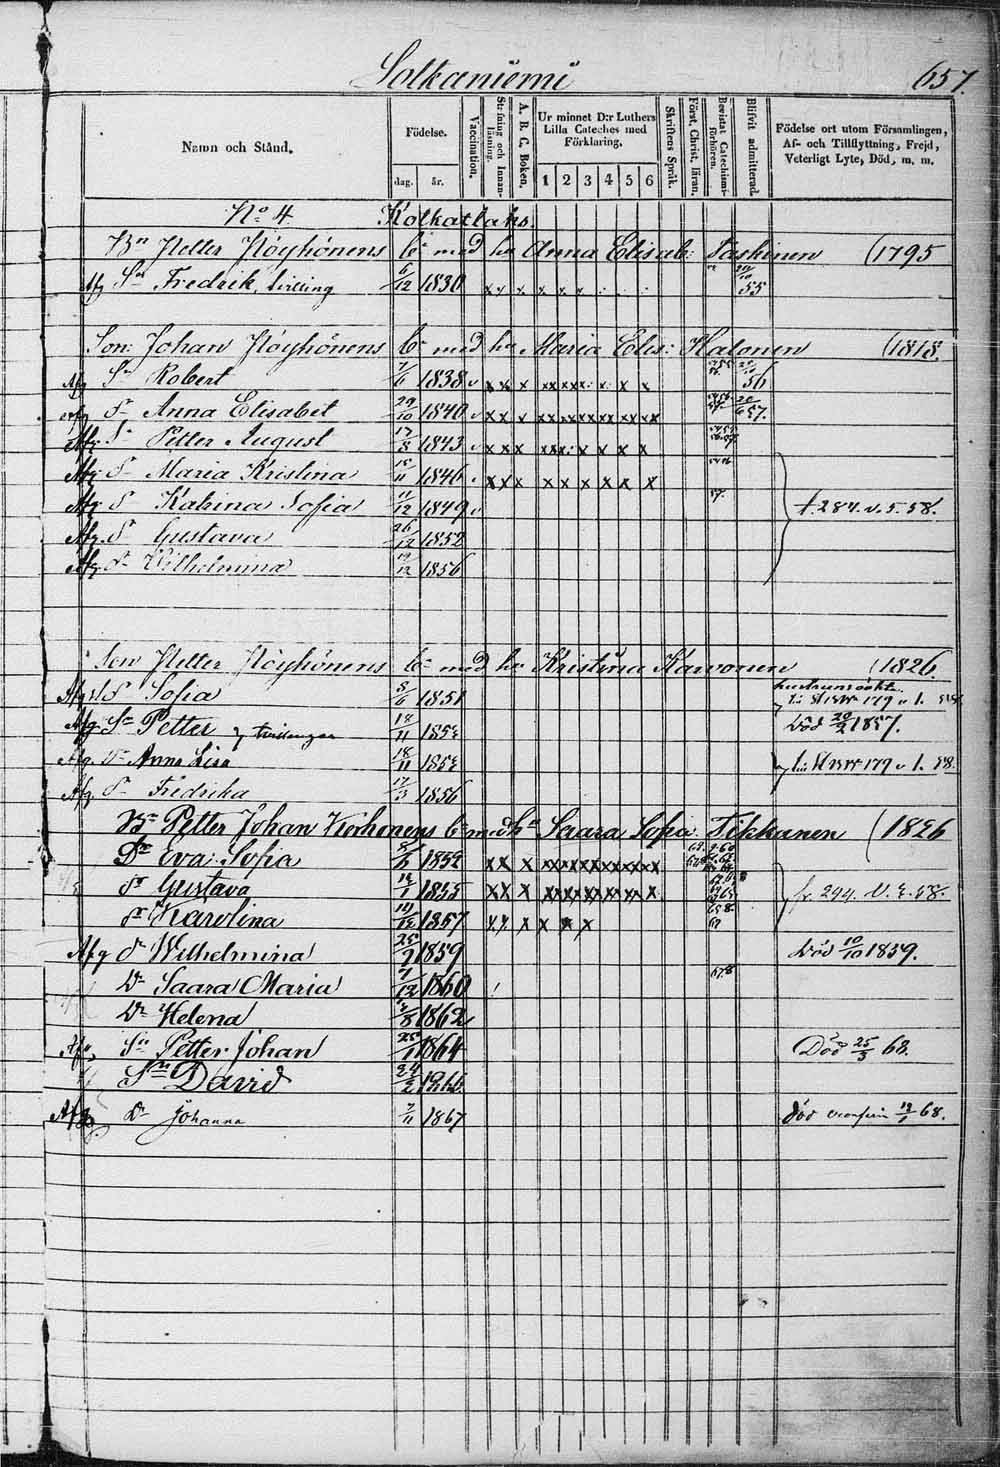 Solkaniemi 657.
Namn och Stånd.
Födelse.
dag. år.
Vaccination.
Stafning och Innanläsning.
A. B. C. Boken.
Ur minnet D:r Luthers Lilla Cateches med Förklaring.
1 2 3 4 5 6
Skriftens Språk.
Först. Christ. läran.
Bevistat Catechismiförhören.
Blifvit admitterad.
Födelse ort utom Församlingen, Af- och Tillflyttning, Frejd, Veterligt Lyte, Död, m. m.
No 4 Kolkatlaks.
Bn Petter Pöyhönens b: med hu Anna Elisab: Taskinen (1795
Afg Sn Fredrik, tvilling 6/12 1830 x x x x x x 55
Son: Johan Pöyhönens b: med hu Maria Elis: Halonen (1818.
Afg Sn Robert 7/6 1838 v x x x x x x x x x 56
Afg D. Anna Elisabet 29/10 1840 v x x x x x x x x x x 20/6 57.
Afg S. Petter August 17/8 1843 v x x x x x x x x x
Afg D. Maria Kristina 15/11 1846 x x x x x x x x x
Afg D Katrina Sofia 11/12 1849 v 57. f. 284. v. 5. 58.
Afg. D Gustava 26/12 1852
Afg D. Wilhelmina 19/12 1856
Son Petter Pöyhönens b: med hu Kristina Karvonen (1826
Afg D Sofia 8/6 1851 179 v 1. 58
Afg Sn Petter tvillingar 18/11 1853 Död 20/2 1857.
Afg. D. Anna Lisa 18/11 1853 179 v 1. 58.
Afg. D. Fredrika 17/3 1856
Bn Petter Johan Korhonens b: med hu Saara Sofia Tikkanen (1826
Dr Eva Sofia 8/6 1852 x x x x x x x x x x
Dr Gustava 12/1 1855 x x x x x x x x x x fr. 294. V. 2. 58.
Dr Karolina 14/12 1857 x x x x x x
Afg D Wilhelmina 25/7 1859 Död 10/10 1859.
Dr Saara Maria 7/12 1860 67.8
Dr Helena 4/8 1862
Afg, Sn Petter Johan 25/1 1864 Död 25/3 68.
Sn David 24/2 1866
Afg Dr Johanna 7/11 1867 död 19/1 68.